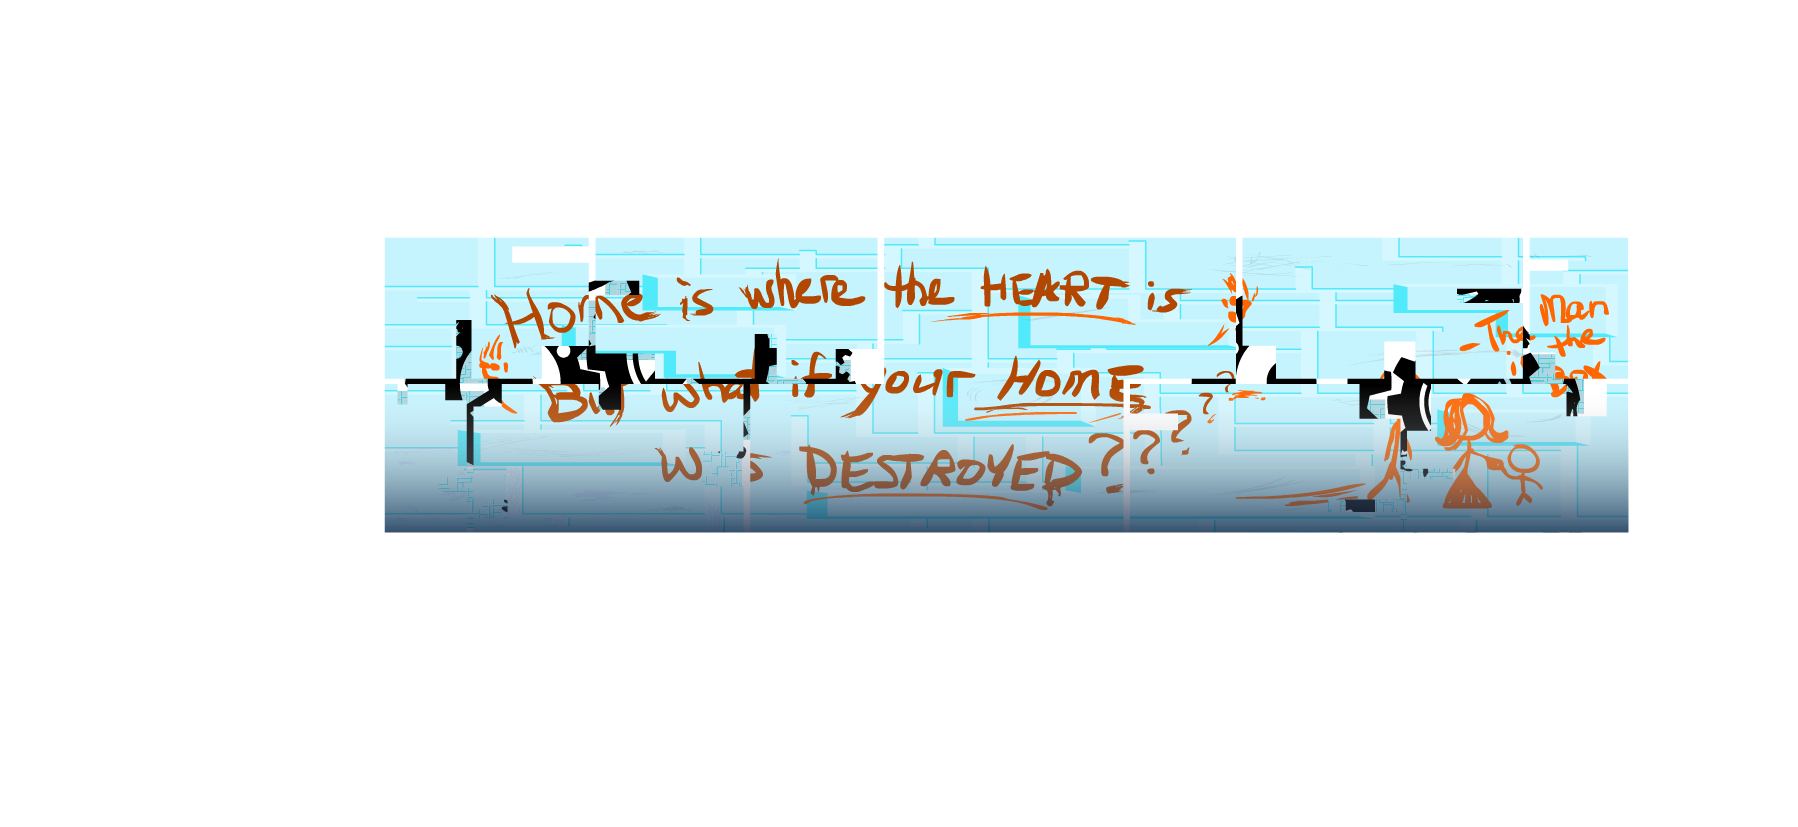 Home is where the HEART is
But what if your HOME
was DESTROYED????
- The Man
the